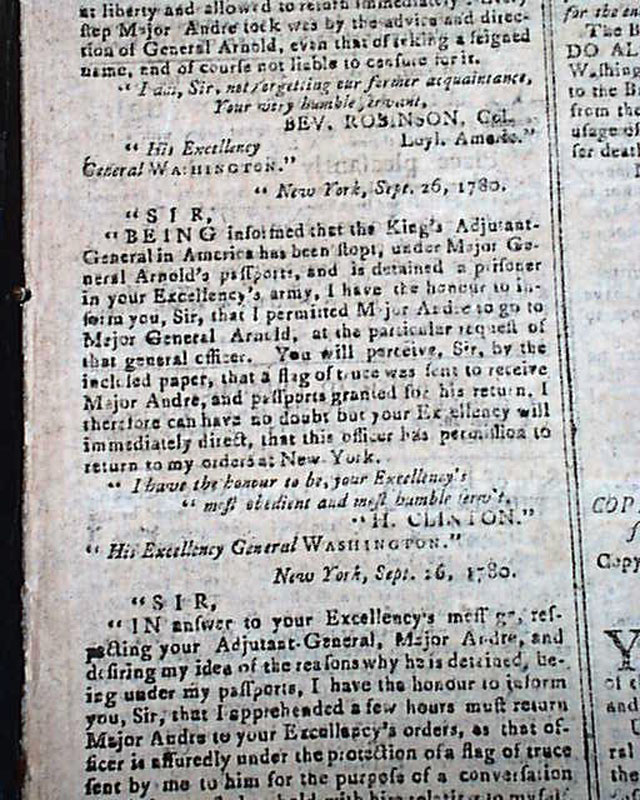 at liberty and allowed to return immediately: Every
step Major Andre took was by the advice and direc-
tion of General Arnold, even that of taking a feigned
name, and of course not liable to censure for it.
"I am, Sir, not forgetting our former acquaintance,
Your very humble servant,
BEV. ROBINSON, Col.
Loyl. Americ."
"His Excellency
General WASHINGTON."
"New York, Sept. 26, 1780.
"SIR,
"BEING informed that the King's Adjutant-
General in America has been stopt, under Major Ge-
neral Arnold's passports, and is detained a prisoner
in your Excellency's army, I have the honour to in-
form you, Sir, that I permitted Major Andre to go to
Major General Arnold, at the particular request of
that general officer. You will perceive, Sir, by the
inclosed paper, that a flag of truce was sent to receive
Major Andre, and passports granted for his return. I
therefore can have no doubt but your Excellency will
immediately direct, that this officer has permission to
return to my orders at New York.
"I have the honour to be, your Excellency's
"most obedient and most humble serv't,
"H. CLINTON."
"His Excellency General WASHINGTON."
New York, Sept. 26, 1780.
"SIR,
"IN answer to your Excellency's message, res-
pecting your Adjutant-General, Major Andre, and
desiring my idea of the reasons why he is detained, be-
ing under my passports, I have the honour to inform
you, Sir, that I apprehended a few hours must return
Major Andre to your Excellency's orders, as that of-
ficer is assuredly under the protection of a flag of truce
sent by me to him for the purpose of a conversation
for the en
The B
DO AL
Washing
to the B
from the
usage of
for death
COP
f
Copy
Y
of t
and
U
ral
the